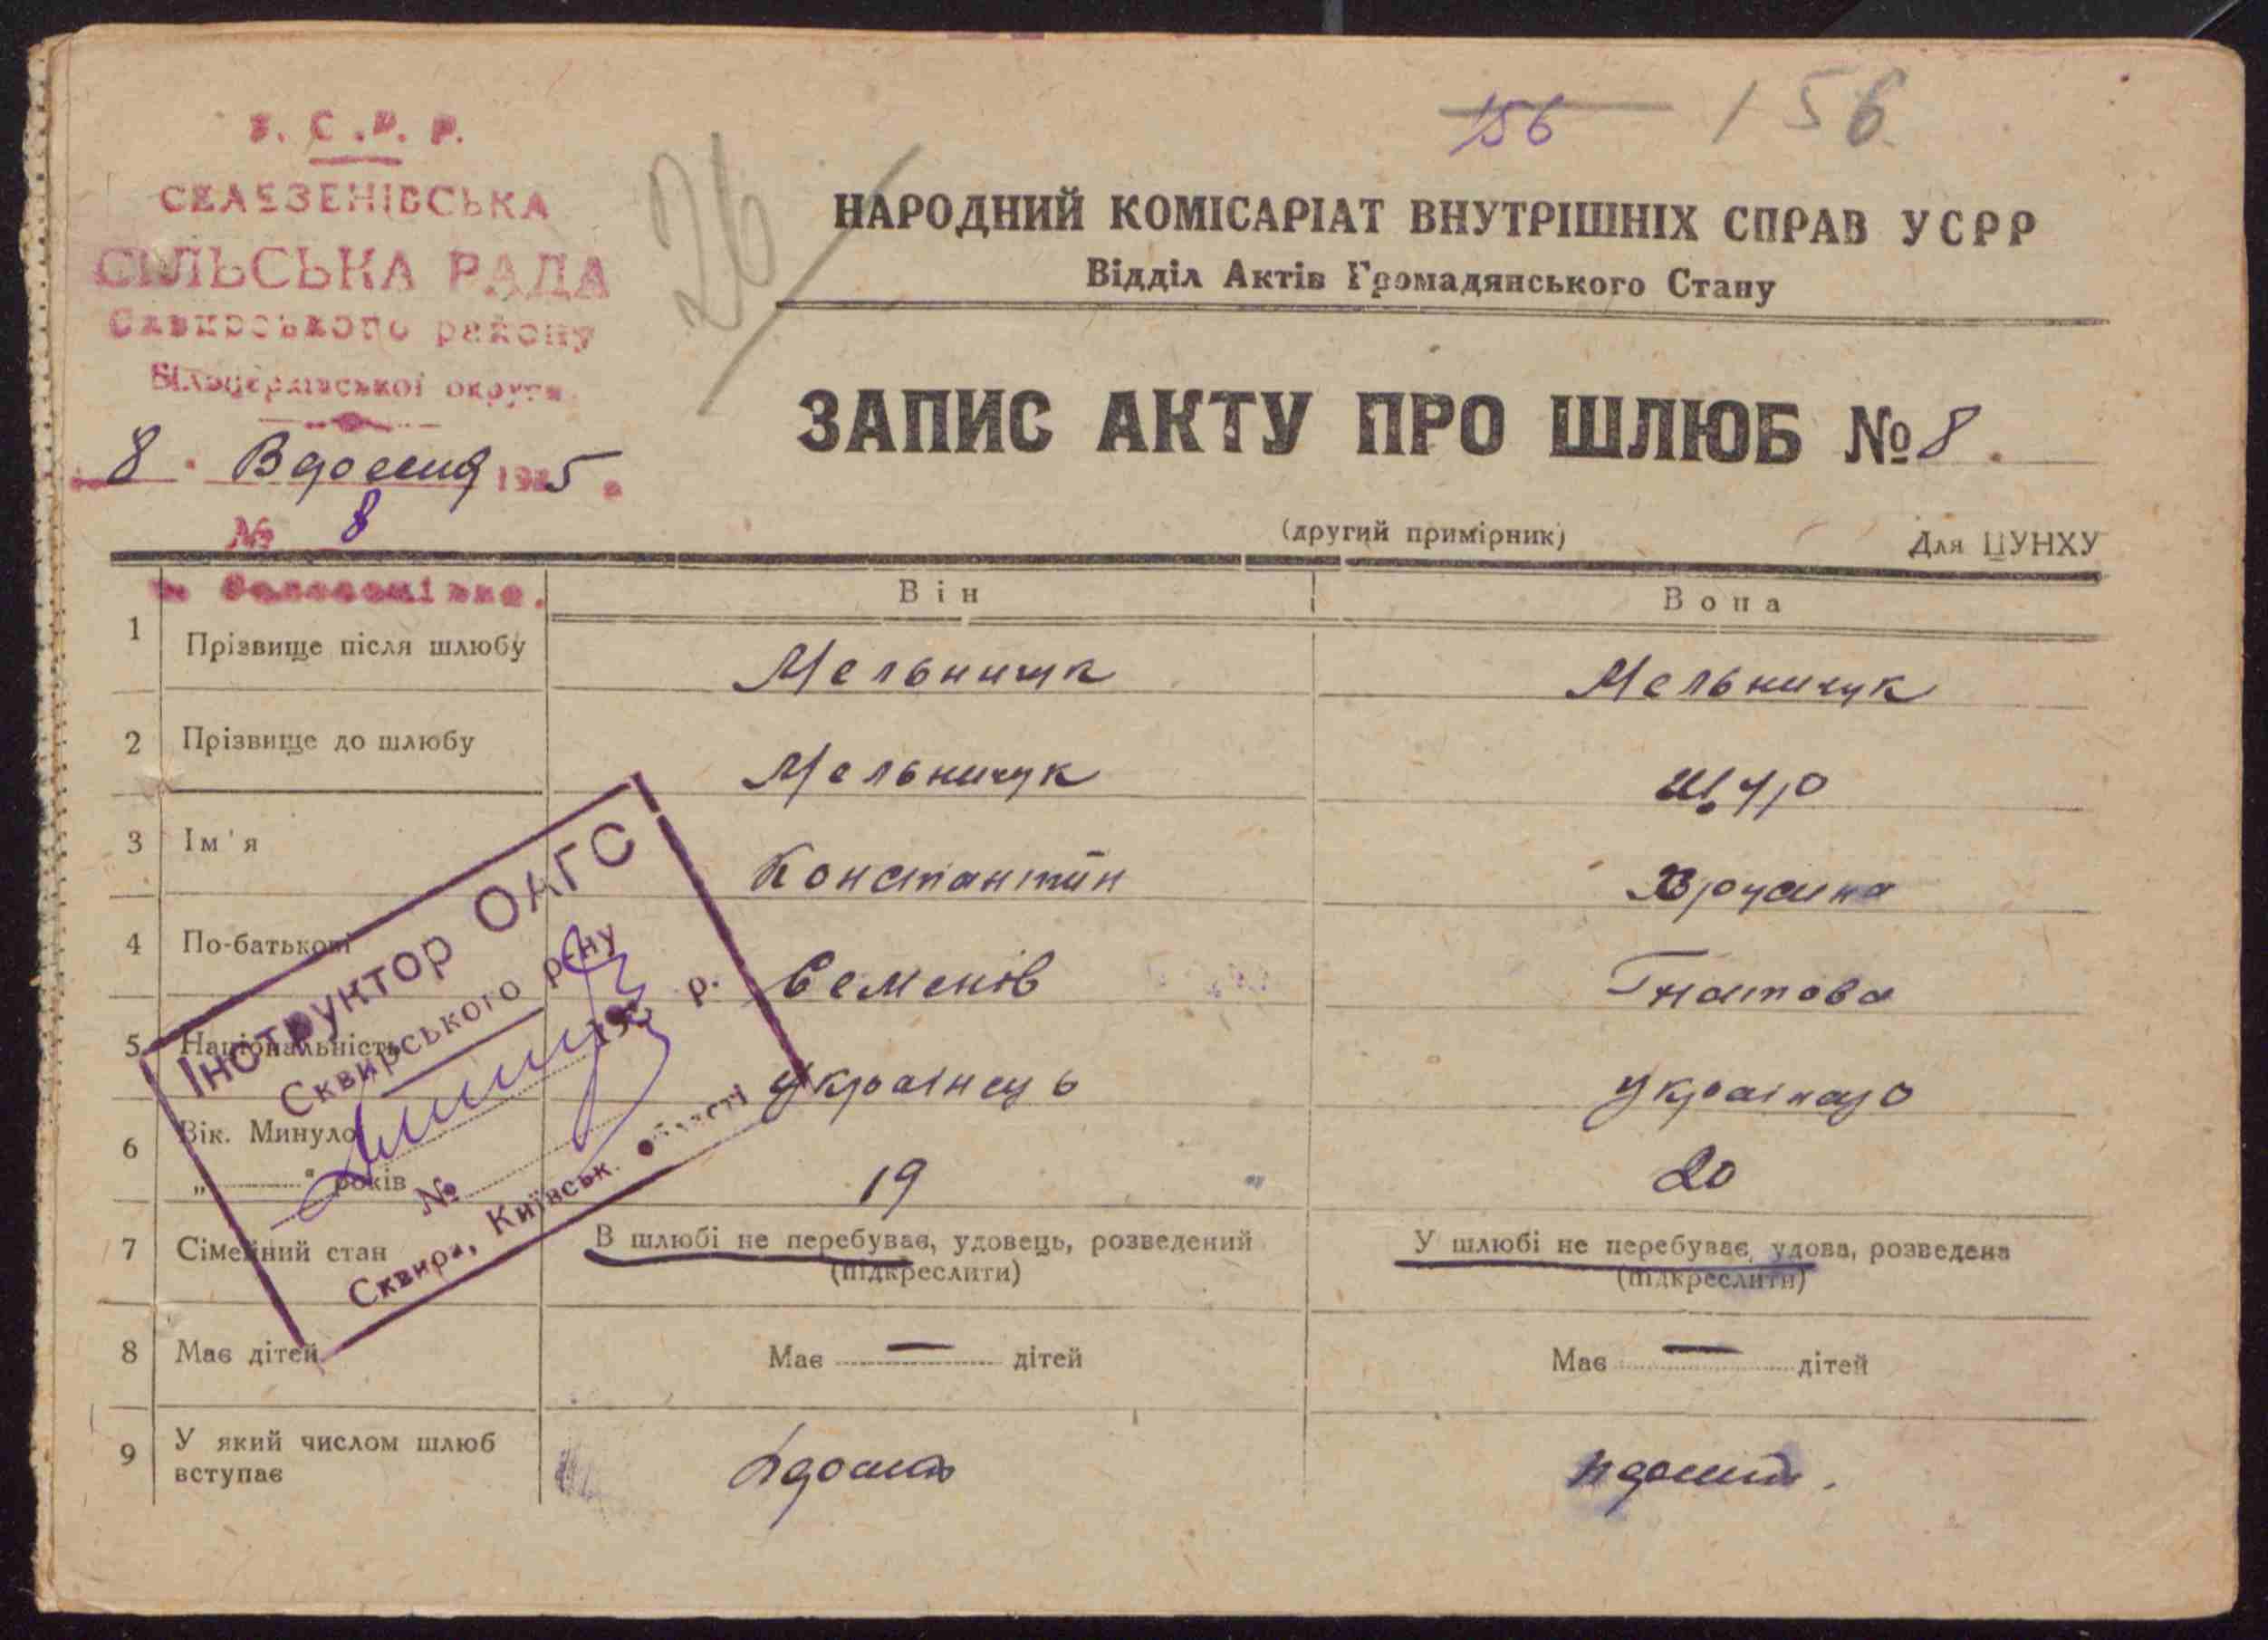 У. С. Р. Р.
СЕЛЕЗЕНІВСЬКА
СІЛЬСЬКА РАДА
Сквирського району
Білоцерківської округи
8 . Вересня 1935.
№ 8
26
156 156
НАРОДНИЙ КОМІСАРІАТ ВНУТРІШНІХ СПРАВ УСРР
Відділ Актів Громадянського Стану
ЗАПИС АКТУ ПРО ШЛЮБ № 8.
(другий примірник) Для ЦУНХУ
Він Вона
1 Прізвище після шлюбу Мельничук Мельничук
2 Прізвище до шлюбу Мельничук Щур
3 Ім'я Константин
4 По-батькові Семенів Гнатова
5 Національність Українець Українка
6 Вік. Минуло „ “ років 19 20
7 Сімейний стан В шлюбі не перебуває, удовець, розведений У шлюбі не перебуває, удова, розведена
(підкреслити) (підкреслити)
8 Має дітей Має — дітей Має — дітей
9 У який числом шлюб
вступає
Інструктор ОАГС
Сквирського р-ну
193 р.
№
Сквира, Київськ. області